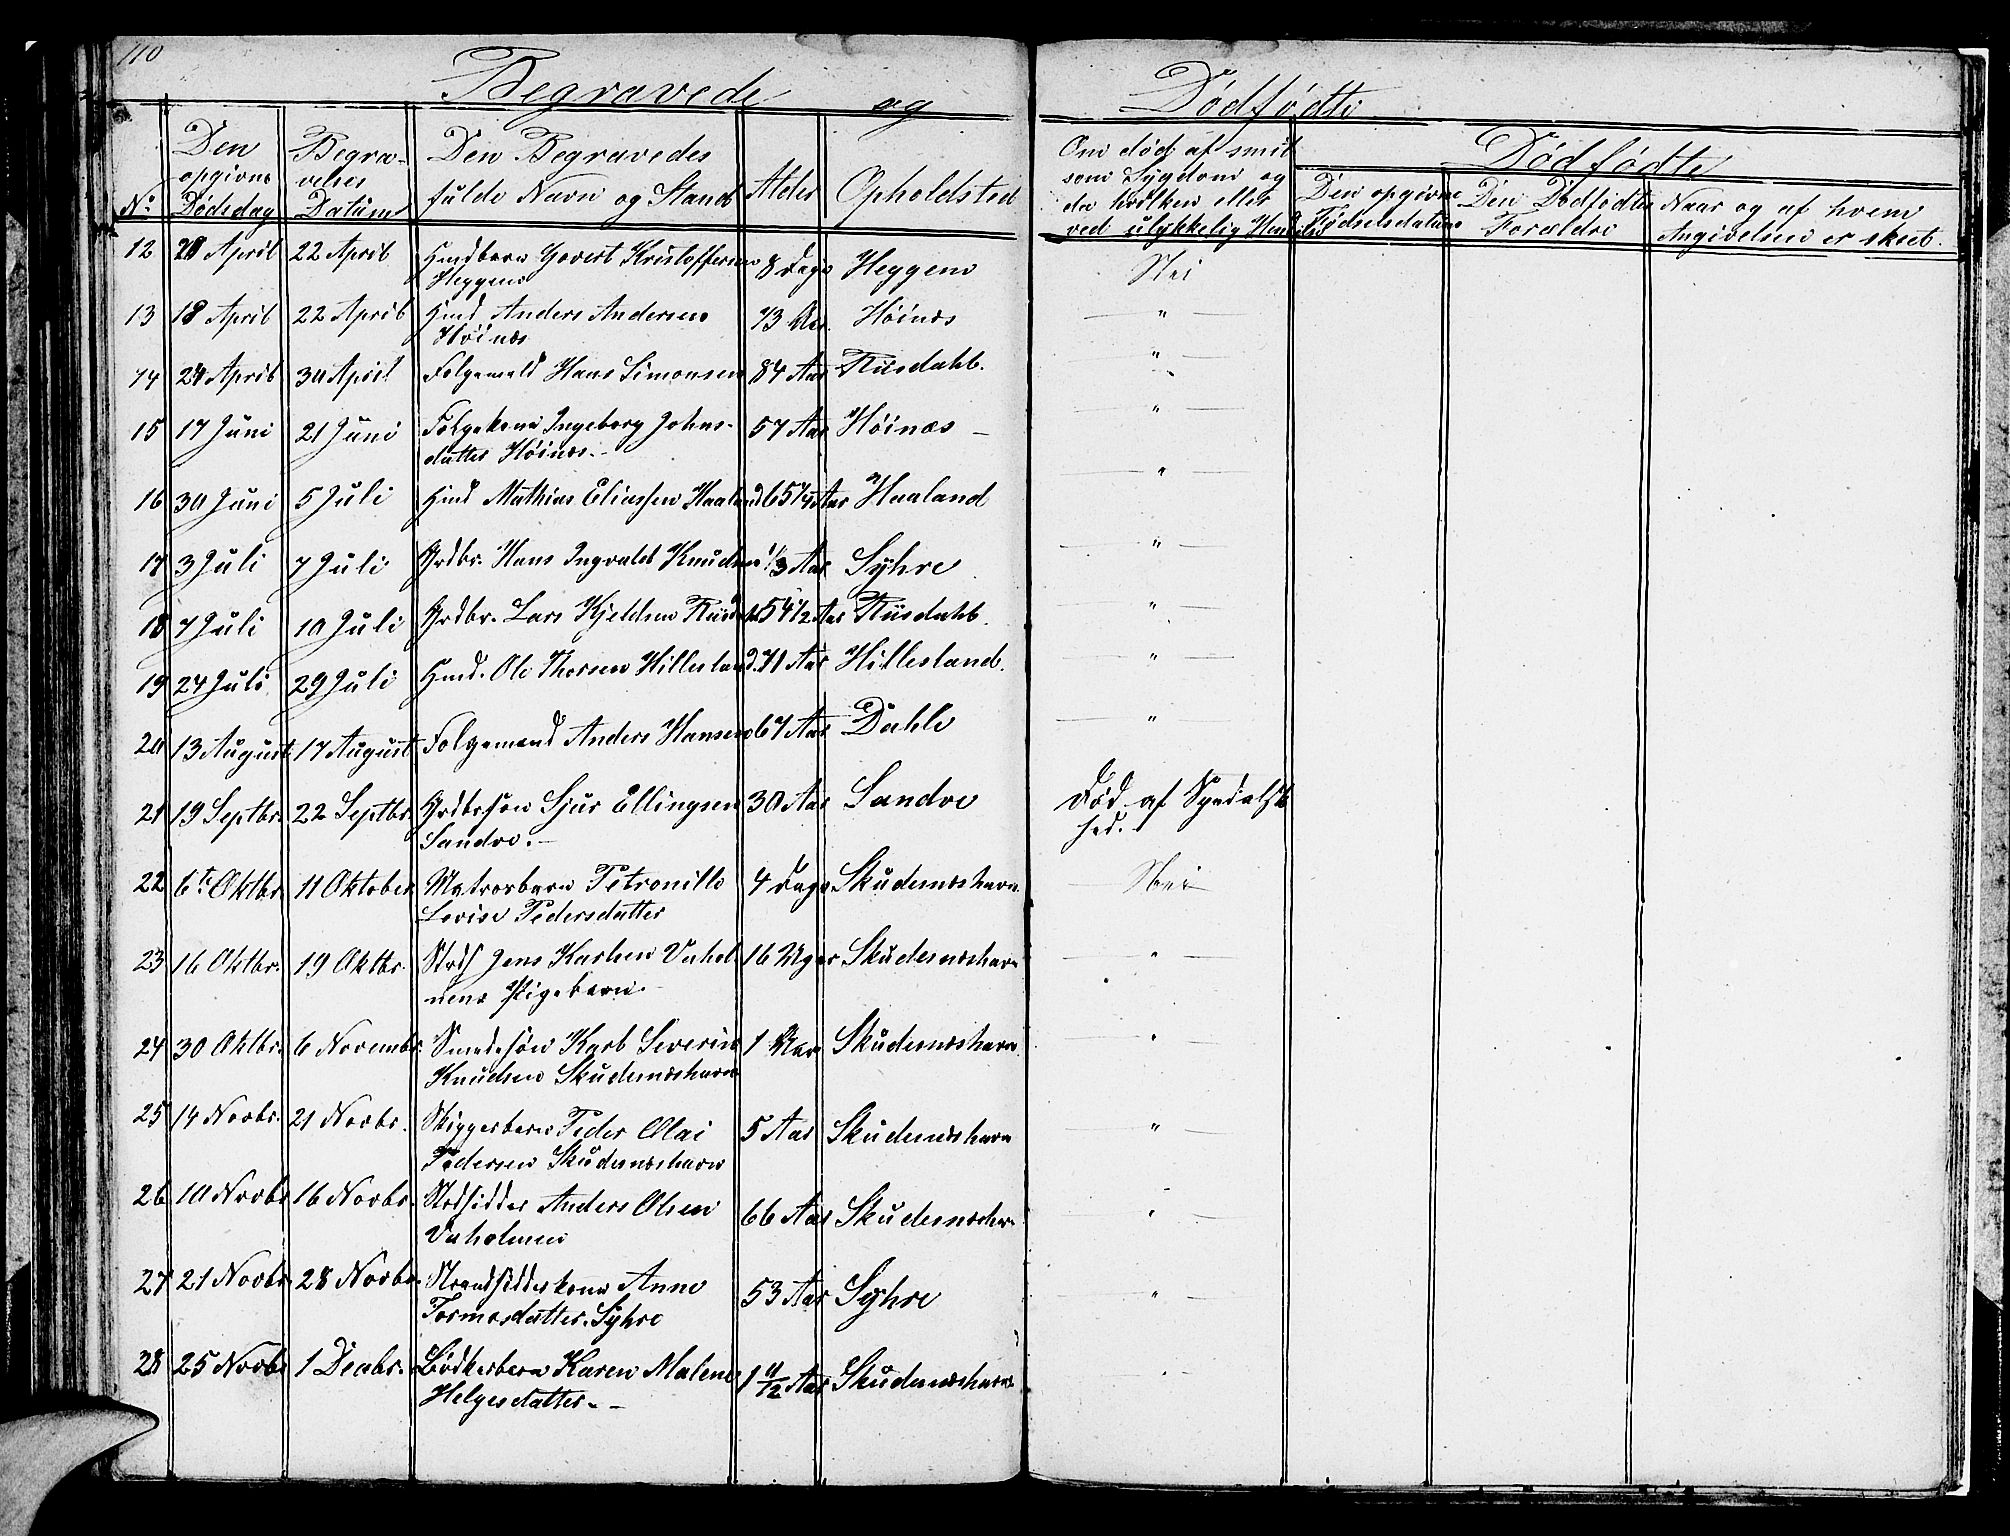 110
Begravede og Dødfødte
No
Den opgivne Dødsdag
Begravelses Datum
Den Begravedes fulde Navn og Stand
Alder
Opholdsted
Om død af smitsom Sygdom og da hvilken eller ved ulykkelig Hendelse
Dødfødte
Den opgivne Fødselsdatum
Den Dødfødtes Forældre
Naar og af hvem Angivelsen er skeet.
12 20 April 22 April Huusbarn Govert Kristoffersen 8 Dage Heggem Nei
Heggem
13 18 April 22 April Huusm. Anders Andersen 73 Aar. Høinæs — " —
Høinæs
14 24 April 30 April Folgemand Hans Simonsen 84 Aar Riisdahl. — " —
15 17 Juni 21 Juni Folgekone Ingeborg Johns- 57 Aar Høinæs — — " —
datter Høinæs.—
16 30 Juni 5 Juli Mathias Eliassen Haaland 65 1/4 Aar Haaland — " —
17 3 Juli 7 Juli Grdbr. Hans Ingvald Knudsen 1/3 Aar Syhre — " —
18 7 Juli 10 Juli Grdbr. Lars Kjeldsen Riisdahl 54 1/2 Aar Riisdahl. — " —
19 24 Juli 29 Juli Ole Thorsen Hillesland. 71 Aar Hillesland. — " —
20 13 August 17 August Folgemand Anders Hansen 67 Aar Dahle — " —
21 19 Septbr. 22 Septbr. Grdbrsøn Sjur Ellingsen 30 Aar Sandve Død af Spedalsk-
Sandve.— hed.
22 6te Oktbr. 11 Oktober Matrosbarn Petronille 4 Dage Skudesneshavn — Nei —
Lovise Pedersdatter
23 16 Oktbr. 19 Oktbr. Strds. Jens Karlsen Vahol- 16 Uger Skudesneshavn — " —
mens Pigebarn.
24 30 Oktbr. 6 Novembr. Smedesøn Karl Severin 1 Aar Skudesneshavn — " —
Knudsen Skudesneshavn
25 14 Novbr. 21 Novbr. Skipperbarn Peder Olai 5 Aar Skudesneshavn — " —
Pedersen Skudesneshavn
26 10 Novbr 16 Novbr. Strdsidder Anders Olsen 66 Aar Skudesneshvn — " —
Vaholmen
27 21 Novbr. 28 Novbr. Strandsidderkone Anne 53 Aar Syhre — " —
Tormosdatter. Syhre
28 25 Novbr 1 Decbr. Bødkerbarn Karen Malene 1 11/12 Aar Skudesneshavn
Helgesdatter.—